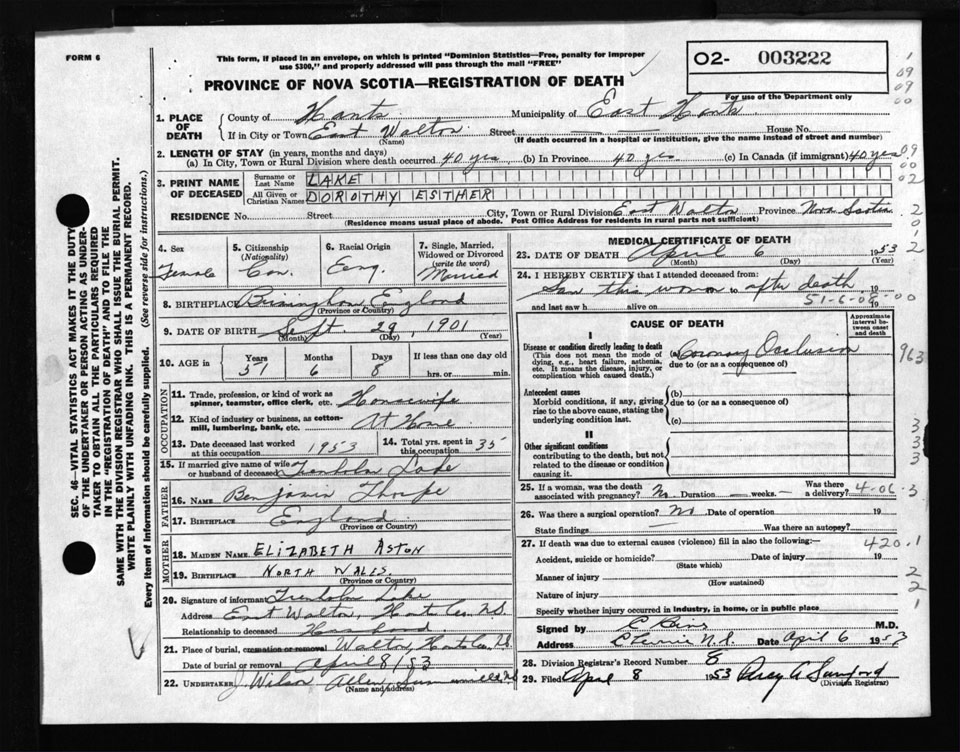 FORM 6
This form, if placed in an envelope, on which is printed "Dominion Statistics—Free, penalty for improper
use $300," and properly addressed will pass through the mail "FREE"
O2- 003222
For use of the Department only
PROVINCE OF NOVA SCOTIA—REGISTRATION OF DEATH
1. PLACE OF DEATH County of Hants Municipality of East Hants
If in City or Town East Walton (Name) Street House No.
(If death occurred in a hospital or institution, give the name instead of street and number)
2. LENGTH OF STAY (in years, months and days)
(a) In City, Town or Rural Division where death occurred 40 yrs (b) In Province 40 yrs (c) In Canada (if immigrant) 40 yrs
3. PRINT NAME OF DECEASED Surname or Last Name LAKE
All Given or Christian Names DOROTHY ESTHER
RESIDENCE No. Street City, Town or Rural Division East Walton Province Nova Scotia
(Residence means usual place of abode. Post Office Address for residents in rural parts not sufficient)
4. Sex Female
5. Citizenship (Nationality) Can.
6. Racial Origin Eng.
7. Single, Married, Widowed or Divorced (write the word) Married
8. BIRTHPLACE England
(Province or Country)
9. DATE OF BIRTH Sept 29, 1901
(Month) (Day) (Year)
10. AGE in Years 51 Months 6 Days 8 If less than one day old
hrs. or min.
OCCUPATION
11. Trade, profession, or kind of work as spinner, teamster, office clerk, etc. Housewife
12. Kind of industry or business, as cotton-mill, lumbering, bank, etc. At Home
13. Date deceased last worked at this occupation 1953
14. Total yrs. spent in this occupation 35
15. If married give name of wife or husband of deceased Lake
FATHER
16. NAME Benjamin Thorpe
17. BIRTHPLACE England
(Province or Country)
MOTHER
18. MAIDEN NAME ELIZABETH ASTON
19. BIRTHPLACE NORTH WALES
(Province or Country)
20. Signature of informant Lake
Address East Walton, Hants Co. N.S.
Relationship to deceased Husband
21. Place of burial, cremation or removal Walton, Hants Co. N.S.
Date of burial or removal April 8/53
22. UNDERTAKER J. Wilson Allen, N.S.
(Name and address)
MEDICAL CERTIFICATE OF DEATH
23. DATE OF DEATH April 6 1953
(Month) (Day) (Year)
24. I HEREBY CERTIFY that I attended deceased from:
Saw this woman to after death 19
and last saw h alive on 19
51-6-08-00
CAUSE OF DEATH
Approximate interval between onset and death
I
Disease or condition directly leading to death
(This does not mean the mode of dying, e.g., heart failure, asthenia, etc. It means the disease, injury, or complication which caused death.)
(a) Coronary Occlusion
due to (or as a consequence of)
Antecedent causes
Morbid conditions, if any, giving rise to the above cause, stating the underlying condition last.
(b)
due to (or as a consequence of)
(c)
II
Other significant conditions
contributing to the death, but not related to the disease or condition causing it.
25. If a woman, was the death associated with pregnancy? No Duration — weeks— Was there a delivery?
26. Was there a surgical operation? No Date of operation 19
State findings Was there an autopsy?
27. If death was due to external causes (violence) fill in also the following:— 420.1
Accident, suicide or homicide? Date of injury 19
(State which)
Manner of injury
(How sustained)
Nature of injury
Specify whether injury occurred in industry, in home, or in public place
Signed by M.D.
Address N.S. Date April 6 1953
28. Division Registrar's Record Number 8
29. Filed April 8 1953 Percy A Sanford
(Division Registrar)
SEC. 46—VITAL STATISTICS ACT MAKES IT THE DUTY
OF THE UNDERTAKER OR PERSON ACTING AS UNDER-
TAKER TO OBTAIN ALL THE PARTICULARS REQUIRED
IN THE "REGISTRATION OF DEATH" AND TO FILE THE
SAME WITH THE DIVISION REGISTRAR WHO SHALL ISSUE THE BURIAL PERMIT.
WRITE PLAINLY WITH UNFADING INK. THIS IS A PERMANENT RECORD.
Every item of Information should be carefully supplied. (See reverse side for instructions.)